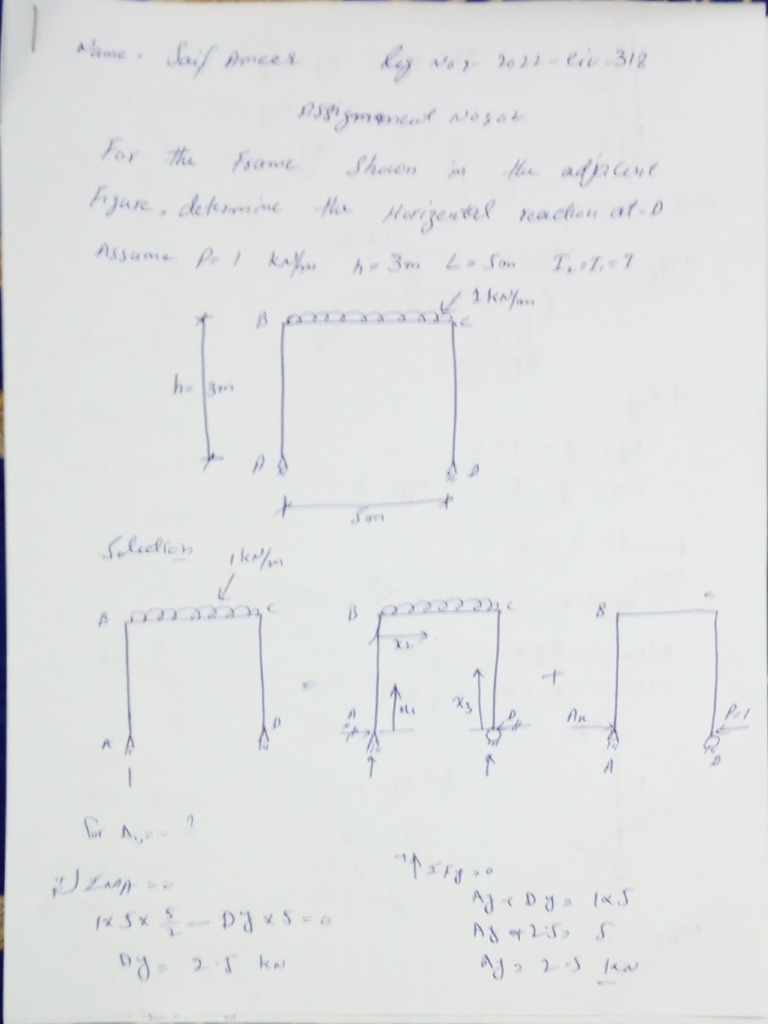 Name. Saif Ameer Reg No:- 2022-Civ-318
Assignment No:02
For the Frame Shown in the adjacent
Figure, determine the Horizental reaction at D
Assume P= 1 kN/m h = 3m L = 5m I₂=I₁=I
1 kN/m
B C
h= 3m
A D
5m
Solution 1kN/m
B C B C B C
x₂
x₁ x₃
A D A D A P=1
A D
ΣMA =0 ↑ΣFy =0
1x5x 5/2 - Dy x 5 = 0 Ay + Dy = 1x5
Dy = 2.5 kN Ay + 2.5 = 5
Ay = 2.5 kN